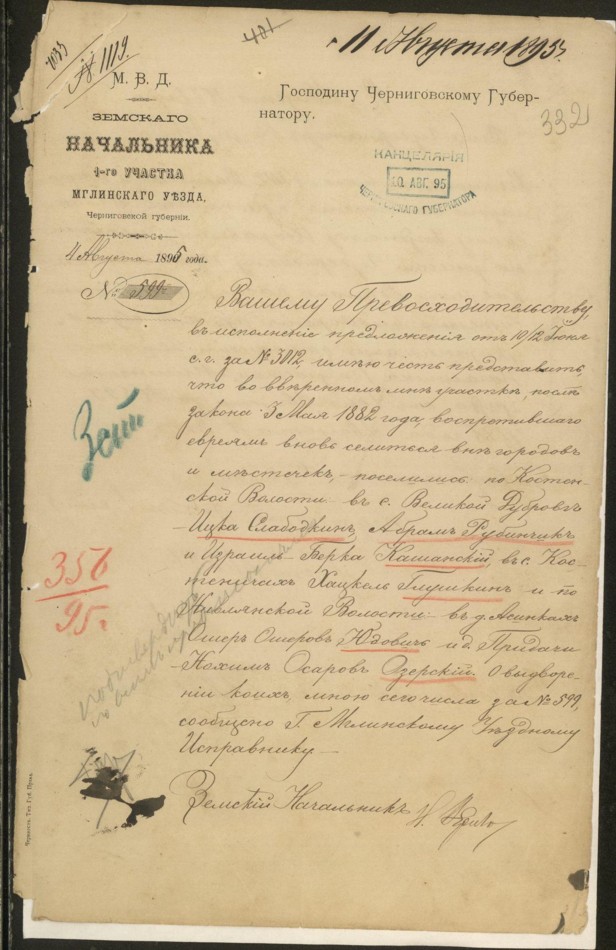 401
11 Августа 1895
№ 1119.
М. В. Д.
ЗЕМСКАГО
НАЧАЛЬНИКА
1-го УЧАСТКА
МГЛИНСКАГО УѢЗДА,
Черниговской губерніи.
4 Августа 1895 года.
№ 599
Господину Черниговскому Губер-
натору.
332
КАНЦЕЛЯРІЯ
10. АВГ. 95
ЧЕРНИГОВСКАГО ГУБЕРНАТОРА
Вашему Превосходительству,
въ исполненіе предложенія отъ 10/12 Іюня
с. г. за № 3012, имѣю честь представить,
что во ввѣренномъ мнѣ участкѣ, послѣ
закона 3 Мая 1882 года, воспретившаго
евреямъ вновь селиться внѣ городовъ
и мѣстечекъ, – поселились: по Костен-
ской Волости – въ с. Великой Дубровѣ
Ицка Слабодкинъ, Абрамъ Рубинчикъ
и Израиль-Берка Кашанскій, въ с. Кос-
теничахъ Хацкель Глушкинъ и по
Волости – въ д. Асинкахъ
Ошеръ Ошеровъ Юдовичъ и д. Придачи
Нохимъ Осаровъ Озерскій. О выдворе-
ніи коихъ, мною сего числа за № 599,
сообщено Г. Мглинскому Уѣздному
Исправнику. –
356
95 г.
Земскій Начальникъ